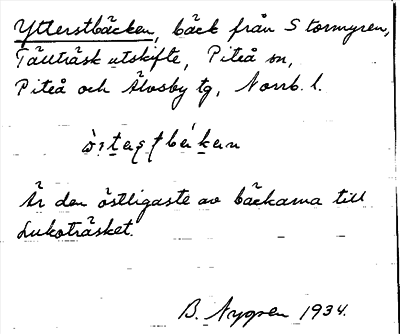 Ytterstbäcken, bäck från Stormyren,
Täuträsk utskifte, Piteå sn,
Piteå och Älvsby tg, Norrb. l.
Är den östligaste av bäckarna till
Lukoträsket.
B. Nygren 1934.